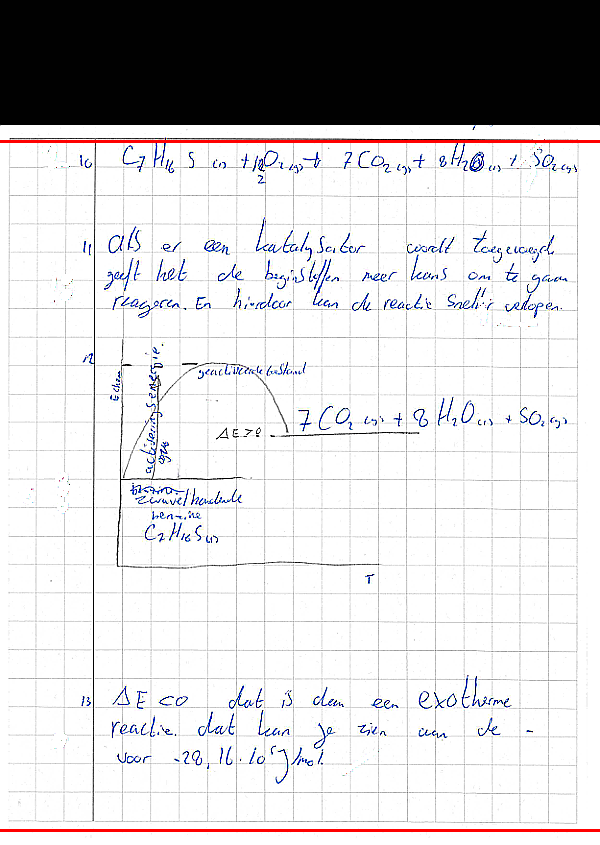 10 C7 H16 S (l) + 12 O2 (g) → 7 CO2 (g) + 8 H2O (l) + SO2 (g)
2
11 als er een katalysator wordt toegevoegd
geeft het de beginstoffen meer kans om te gaan
reageren. En hierdoor kan de reactie sneller verlopen.
12
E chem
activeringsenergie
geactiveerde toestand
ΔE>0
7 CO2 (g) + 8 H2O (l) + SO2 (g)
zwavelhoudende
benzine
C7 H16 S (l)
T
13 ΔE <0 dat is dan een exotherme
reactie. dat kan je zien aan de -
voor -28,16·10^5 J/mol.